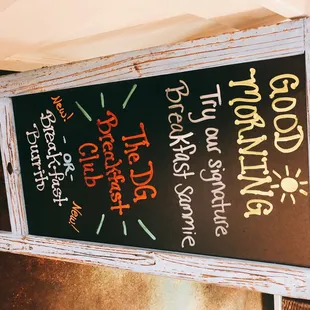 GOOD
MORNING
Try our signature
Breakfast Sammie
The DG
Breakfast
Club
New!
- OR -
Breakfast
Burrito
New!